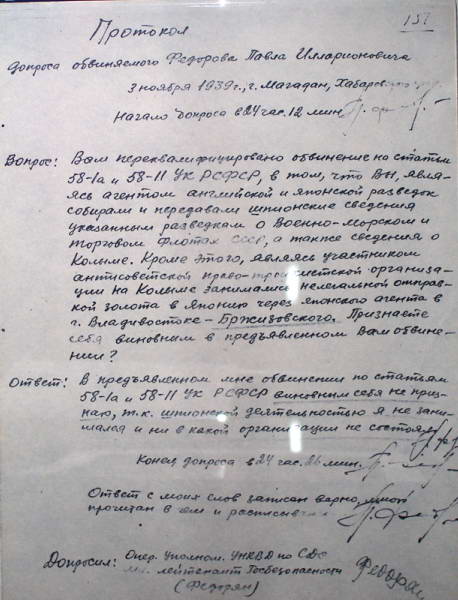 157
Протокол
допроса обвиняемого Федорова Павла Илларионовича
3 ноября 1939г., г. Магадан,
Начало допроса в 24 час. 12 мин.
Вопрос: Вам переквалифицировано обвинение на статьи
58-1а и 58-11 УК РСФСР, в том, что Вы, явля-
ясь агентом английской и японской разведок
собирали и передавали шпионские сведения
указанным разведкам о Военно-морском и
торговом Флотах СССР, а также сведения о
Колыме. Кроме этого, являясь участником
антисоветской право-троцкистской организа-
ции на Колыме занимались нелегальной отправ-
кой золота в Японию через японского агента в
г. Владивостоке - Бржизовского. Признаете
себя виновным в предъявленном Вам обвине-
нии?
Ответ: В предъявленном мне обвинении по статьям
58-1а и 58-11 УК РСФСР виновным себя не приз-
наю, т.к. шпионской деятельностью я не зани-
мался и ни в какой организации не состоял.
Конец допроса в 24 час. 26 мин.
Ответ с моих слов записан верно, мной
прочитан в чем и
Допросил: Опер. Уполном. УНКВД по СДС
мл. лейтенант Госбезопасности
(Федорян)